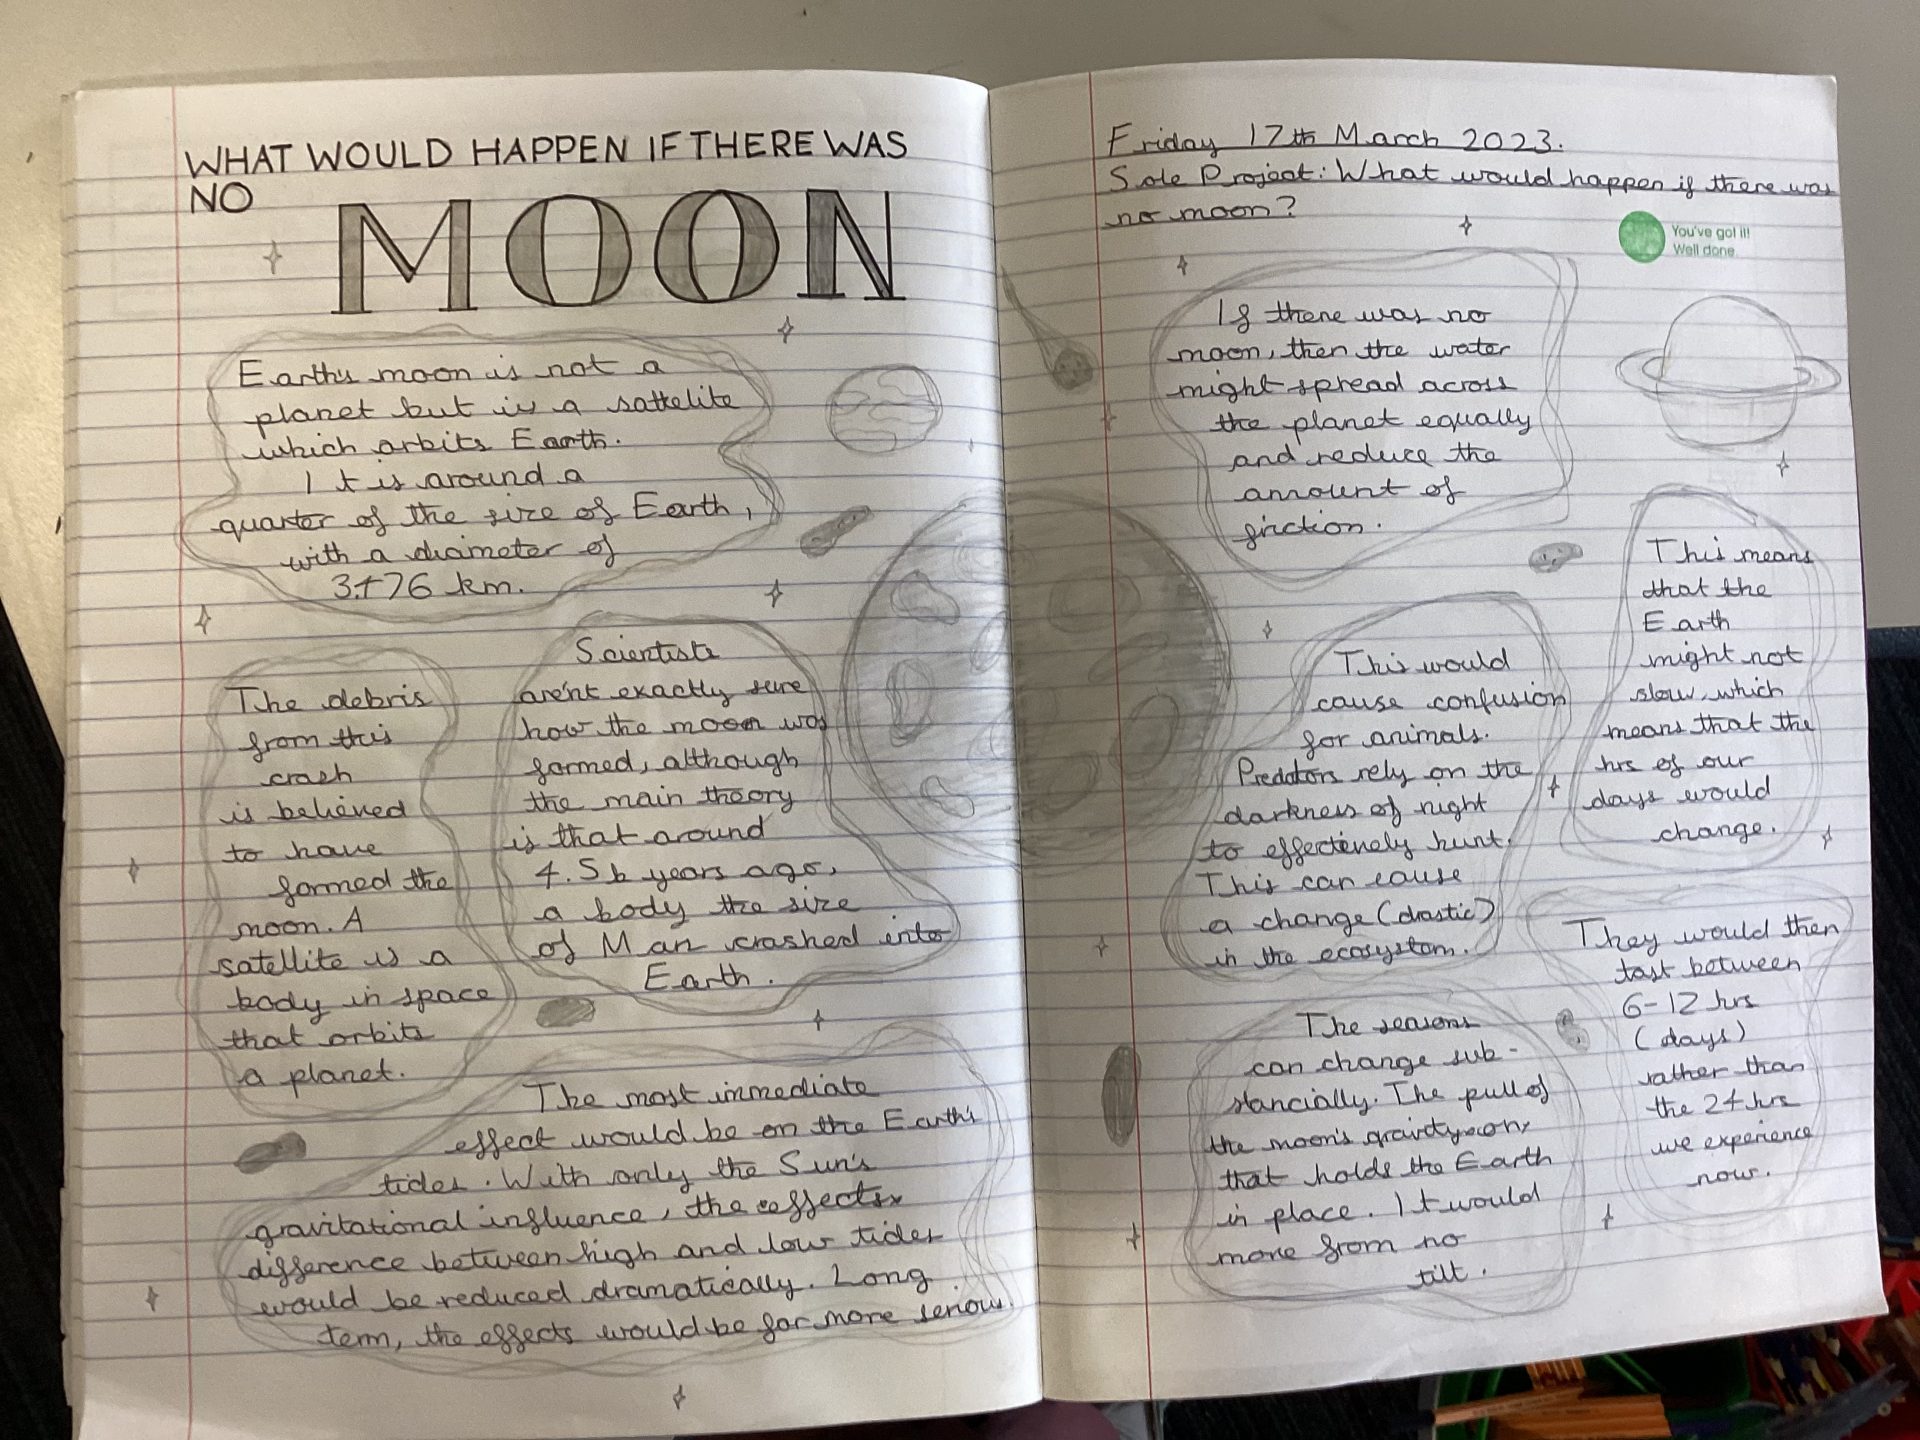 WHAT WOULD HAPPEN IF THERE WAS
NO
MOON
Earth's moon is not a
planet but is a sattelite
which orbits Earth.
It is around a
quarter of the size of Earth,
with a diameter of
3476 km.
Scientists
are'nt exactly sure
how the moon was
formed, although
the main theory
is that around
4.5b years ago,
a body the size
of Mars crashed into
Earth.
The debris
from this
crash
is believed
to have
formed the
moon. A
satellite is a
body in space
that orbits
a planet.
The most immediate
effect would be on the Earth's
tides. With only the Sun's
gravitational influence, the effects
difference between high and low tides
would be reduced dramatically. Long
term, the effects would be far more serious.
Friday 17th March 2023.
Sole Project: What would happen if there was
no moon?
You've got it!
Well done.
If there was no
moon, then the water
might spread across
the planet equally
and reduce the
amount of
friction.
This means
that the
Earth
might not
slow, which
means that the
hrs of our
days would
change.
This would
cause confusion
for animals.
Predators rely on the
darkness of night
to effectively hunt.
This can cause
a change (drastic)
in the ecosystem.
They would then
last between
6-12 hrs
(days)
rather than
the 24 hrs
we experience
now.
The seasons
can change sub-
stancially. The pull of
the moon's gravity on,
that holds the Earth
in place. It would
move from no
tilt.